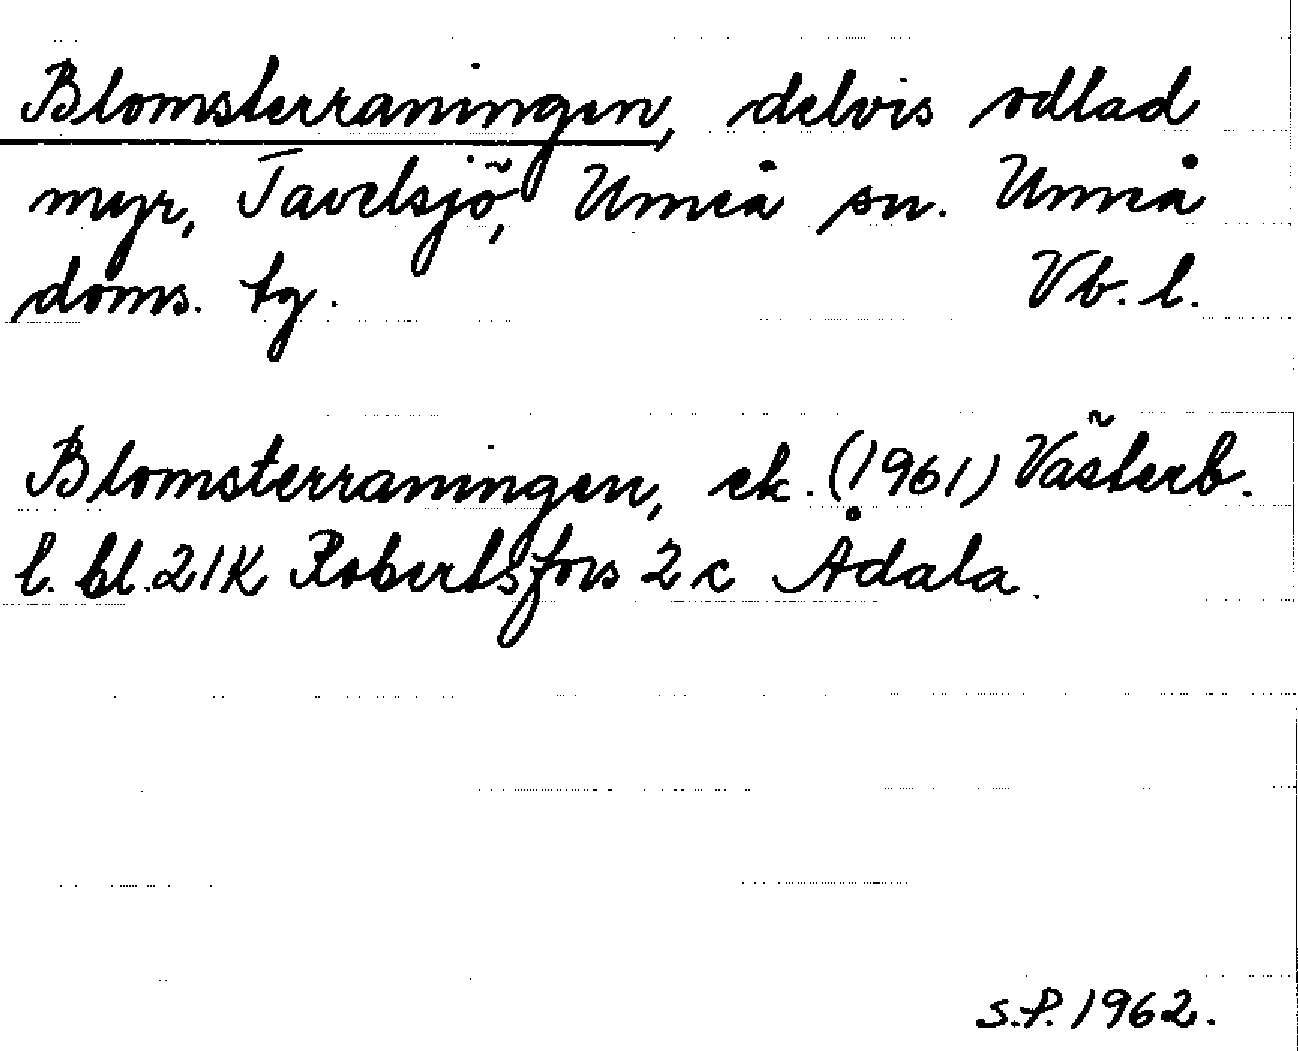 Blomsterraningen, delvis odlad
myr, Tavelsjö, Umeå sn. Umeå
doms. tg. Vb. l.
Blomsterraningen, ek. (1961) Västerb.
l. bl. 21K Robertsfors 2c Ådala.
S.P. 1962.